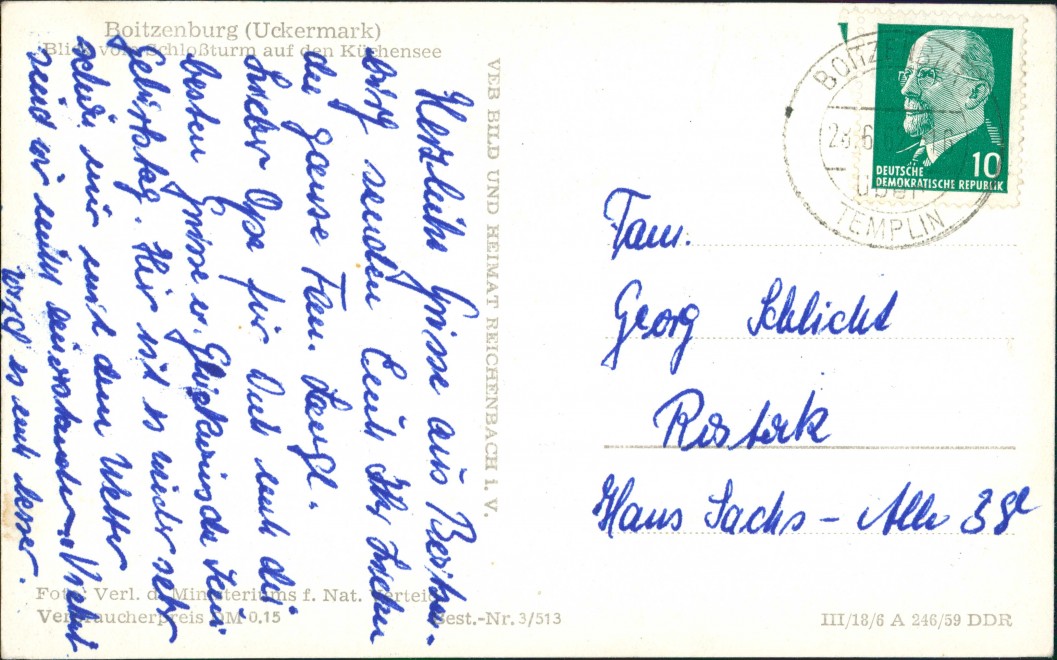 Boitzenburg (Uckermark)
Blick vom Schloßturm auf den Küchensee
Herzliche Grüsse aus Boitzen-
burg senden Euch Ihr Lieben
die ganze Fam.
Lieber Opa für Dich auch die
besten Grüsse u. Glückwünsche zum
Geburtstag. Hier ist es wieder sehr
schön nur mit dem Wetter
sind wir nicht einverstanden. Vielleicht
wird es noch besser.
VEB BILD UND HEIMAT REICHENBACH i. V.
Foto: Verl. d. Ministeriums f. Nat. Verteid
Verbraucherpreis DM 0.15
Best.-Nr. 3/513
BOITZENBURG
TEMPLIN
DEUTSCHE
DEMOKRATISCHE REPUBLIK
10
Fam.
Georg Schlicht
Rostock
Hans Sachs - Alle
III/18/6 A 246/59 DDR